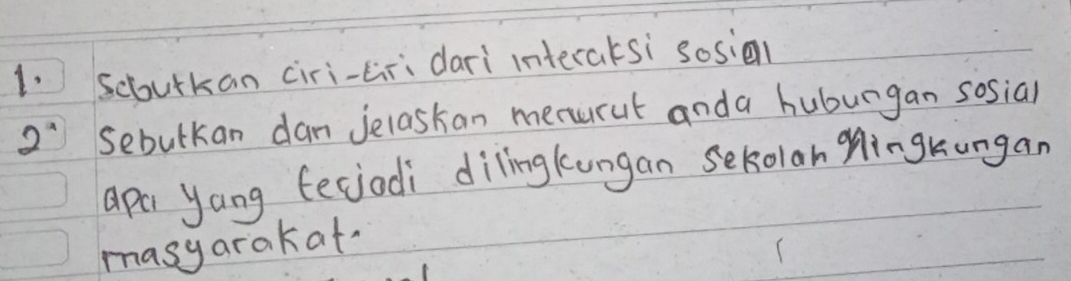 1. Sebutkan ciri-ciri dari interaksi sosial
2. Sebutkan dan jelaskan menurut anda hubungan sosial
apa yang terjadi dilingkungan sekolah lingkungan
masyarakat.